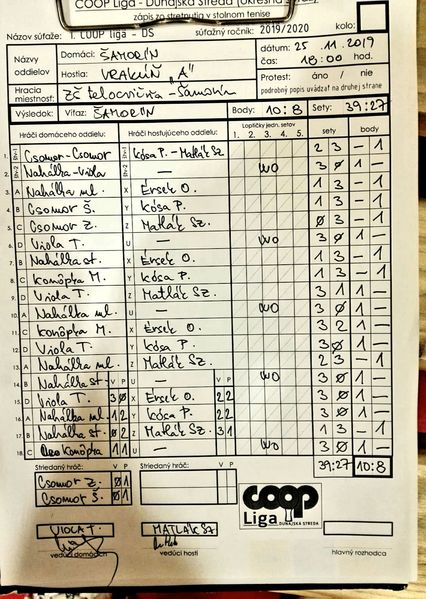 COOP Liga - Dunajská Streda (okresná
zápis zo stretnutia v stolnom tenise
Názov súťaže: 1. COOP liga - DS súťažný ročník: 2019/2020 kolo:
Názvy oddielov Domáci: ŠAMORÍN dátum: 25 11 2019
Hostia: VRAKÚŇ "A" čas: 18:00 hod.
Hracia miestnosť: ZŠ telocvičňa - Šamorín Protest: áno / nie
podrobný popis uvádzať na druhej strane
Výsledok: Víťaz: ŠAMORÍN Body: 10:8 Sety: 39:27
Hráči domáceho oddielu: Hráči hosťujúceho oddielu: Loptičky jedn. setov sety body
1. 2. 3. 4. 5.
1. Csomor-Csomor Kósa P. - Matlák Sz 2 3 — 1
2. Nahálka-Viola — WO 3 0 1 —
3. A Nahálka ml. X Érsek O. 1 3 — 1
4. B Csomor Š. Y Kósa P. 1 3 — 1
5. C Csomor Z. Z Matlák Sz. 0 3 — 1
6. D Viola T. U — WO 3 0 1 —
7. B Nahálka st. X Érsek O. 1 3 — 1
8. C Konôpka M. Y Kósa P. 1 3 — 1
9. D Viola T. Z Matlák Sz. 3 1 1 —
10. A Nahálka ml. U — WO 3 0 1 —
11. C Konôpka M. X Érsek O. 3 2 1 —
12. D Viola T. Y Kósa P. 3 0 1 —
13. A Nahálka ml. Z Matlák Sz. 2 3 — 1
14. B Nahálka st. V P U — V P WO 3 0 1 —
15. D Viola T. 3 0 X Érsek O. 2 2 3 0 1 —
16. A Nahálka ml. 1 2 Y Kósa P. 2 2 3 0 1 —
17. B Nahálka st. 0 2 Z Matlák Sz. 3 1 1 3 — 1
18. C Konôpka 1 1 U — WO 3 0 1 —
Striedaný hráč: V P Striedaný hráč: V P 39:27 10:8
Csomor Z. 0 1
Csomor Š. 0 1
coop
Liga DUNAJSKÁ STREDA
VIOLA T. MATLÁK SZ
vedúci domácich vedúci hostí hlavný rozhodca